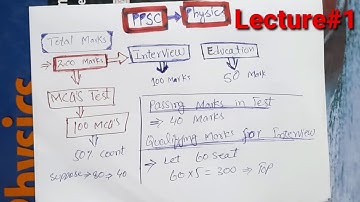 PPSC → Physics
Lecture#1
Total Marks
⇒ 200 Marks
Interview
100 Marks
Education
50 Mark
MCQ'S Test
100 MCQ's
50% Count
Suppose → 80 → 40
Passing Marks in Test
⇒ 40 Marks
Qualifying Marks for Interview
→ Let 60 seat
60 x 5 = 300 ⇒ Top
Physics